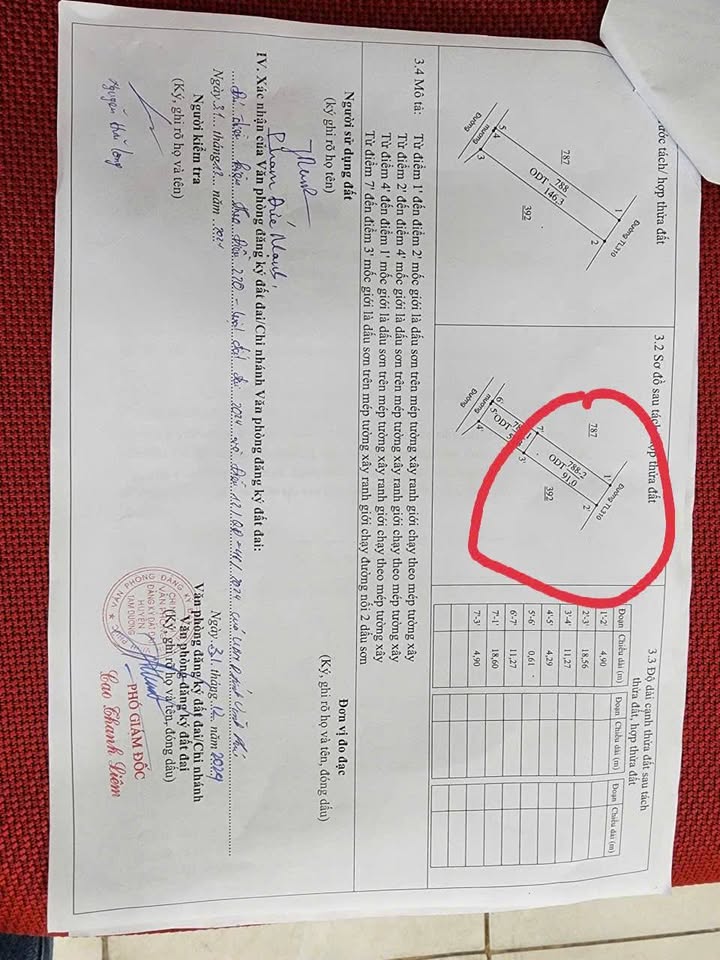 ước tách/ hợp thửa đất
787
1
Đường TL310
2
788
ODT 146.3
392
5
4
3
Đường
mương
3.2 Sơ đồ sau tách, hợp thửa đất
787
1'
Đường TL310
2'
788-2
ODT 91.0
392
7'
3'
ODT
6'
5'
4'
Đường
mương
3.3 Độ dài cạnh thửa đất sau tách
thửa đất, hợp thửa đất
Đoạn Chiều dài (m) Đoạn Chiều dài (m) Đoạn Chiều dài (m)
1'-2' 4,90
2'-3' 18,56
3'-4' 11,27
4'-5' 4,29
5'-6' 0,61
6'-7' 11,27
7'-1' 18,60
7'-3' 4,90
3.4 Mô tả: Từ điểm 1' đến điểm 2' mốc giới là dấu sơn trên mép tường xây ranh giới chạy theo mép tường xây
Từ điểm 2' đến điểm 4' mốc giới là dấu sơn trên mép tường xây ranh giới chạy theo mép tường xây
Từ điểm 4' đến điểm 1' mốc giới là dấu sơn trên mép tường xây ranh giới chạy theo mép tường xây
Từ điểm 7' đến điểm 3' mốc giới là dấu sơn trên mép tường xây ranh giới chạy đường nối 2 dấu sơn
Người sử dụng đất
(ký ghi rõ họ tên)
Phạm Đức Mạnh
Đơn vị đo đạc
(Ký, ghi rõ họ và tên, đóng dấu)
IV. Xác nhận của Văn phòng đăng ký đất đai/Chi nhánh Văn phòng đăng ký đất đai:
2024
Ngày 31 tháng 12 năm 2024
Người kiểm tra
(Ký, ghi rõ họ và tên)
Ngày 31 tháng 12 năm 2024
Văn phòng đăng ký đất đai/Chi nhánh
Văn phòng đăng ký đất đai
(Ký, ghi rõ họ và tên, đóng dấu)
VĂN PHÒNG ĐĂNG KÝ
HUYỆN
TAM DƯƠNG
PHÓ GIÁM ĐỐC
Cao Thanh Liêm